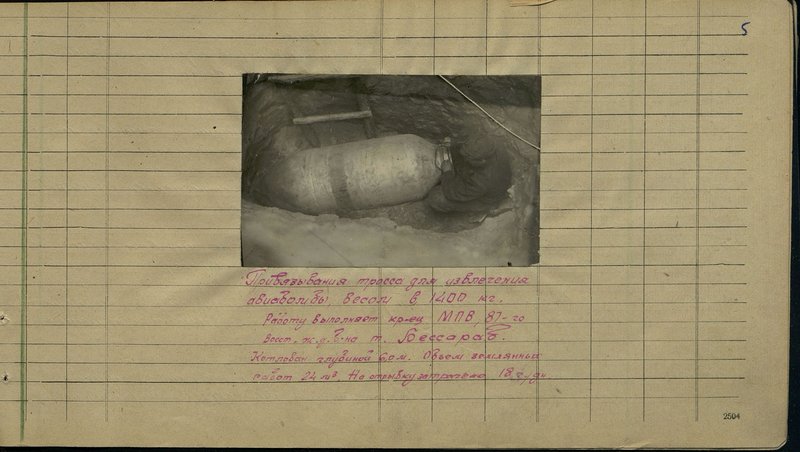 5
Привязывания тросса для извлечения
авиабомбы, весом в 1400 кг.
Работу выполняет кр-ец МПВ, 87-го
восст. ж.д. б-на т. Бессараб.
Котлован глубиной 6,0 м. Объем землянных
работ 24 м³. На отрывку затрачено 18 ч/дн.
2504